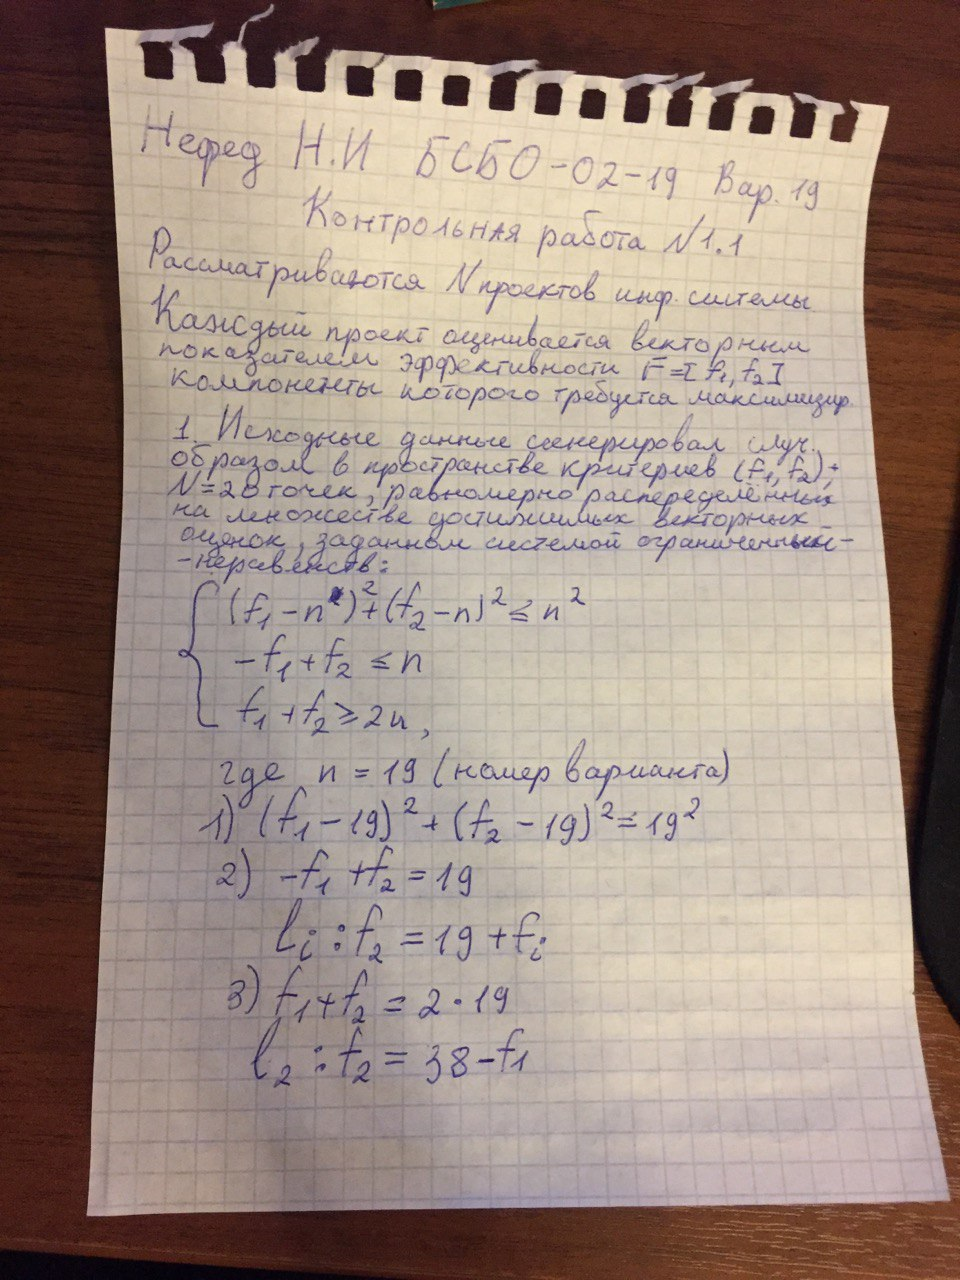 Нефед Н.И БСБО-02-19 Вар. 19
Контрольная работа N1.1
Рассматриваются N проектов инф. системы.
Каждый проект оценивается векторным
показателем эффективности F=[f₁,f₂]
компоненты которого требуется максимизир.
1. Исходные данные сгенерировал случ.
образом в пространстве критериев (f₁,f₂);
N=20 точек, равномерно распределённых
на множестве достижимых векторных
оценок, заданном системой ограничений-
-неравенств:
(f₁-n)²+(f₂-n)²≤n²
-f₁+f₂≤n
f₁+f₂≥2n,
где n=19 (номер варианта)
1) (f₁-19)²+(f₂-19)²=19²
2) -f₁+f₂=19
lᵢ:f₂=19+fᵢ
3) f₁+f₂=2·19
l₂:f₂=38-f₁